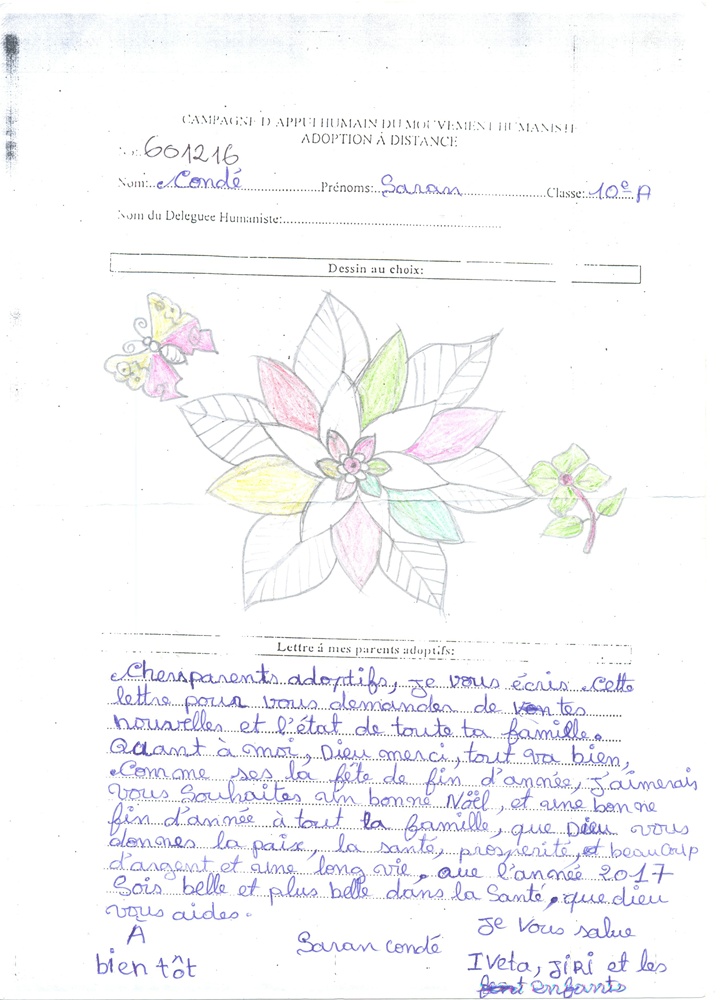 CAMPAGNE D'APPUI HUMAIN DU MOUVEMENT HUMANISTE
ADOPTION À DISTANCE
No: 601216
Nom: Condé Prénoms: Saran Classe: 10e A
Nom du Deleguee Humaniste:
Dessin au choix:
Lettre á mes parents adoptifs:
Chers parents adoptifs, je vous écris cette
lettre pour vous demandes de tes
nouvelles et l'état de toute ta famille.
Quant à moi, Dieu merci, tout va bien,
Comme ses la fête de fin d'année, j'aimerais
vous souhaites un bonne Nöel, et une bonne
fin d'année à tout la famille, que Dieu vous
donnes la paix, la santé, prosperité, et beaucoup
d'argent et une long vie, que l'année 2017
Sois belle et plus belle dans la Santé, que dieu
vous aides.
A bientôt
Saran condé
Je vous salue
Iveta, JIRI et les
enfants